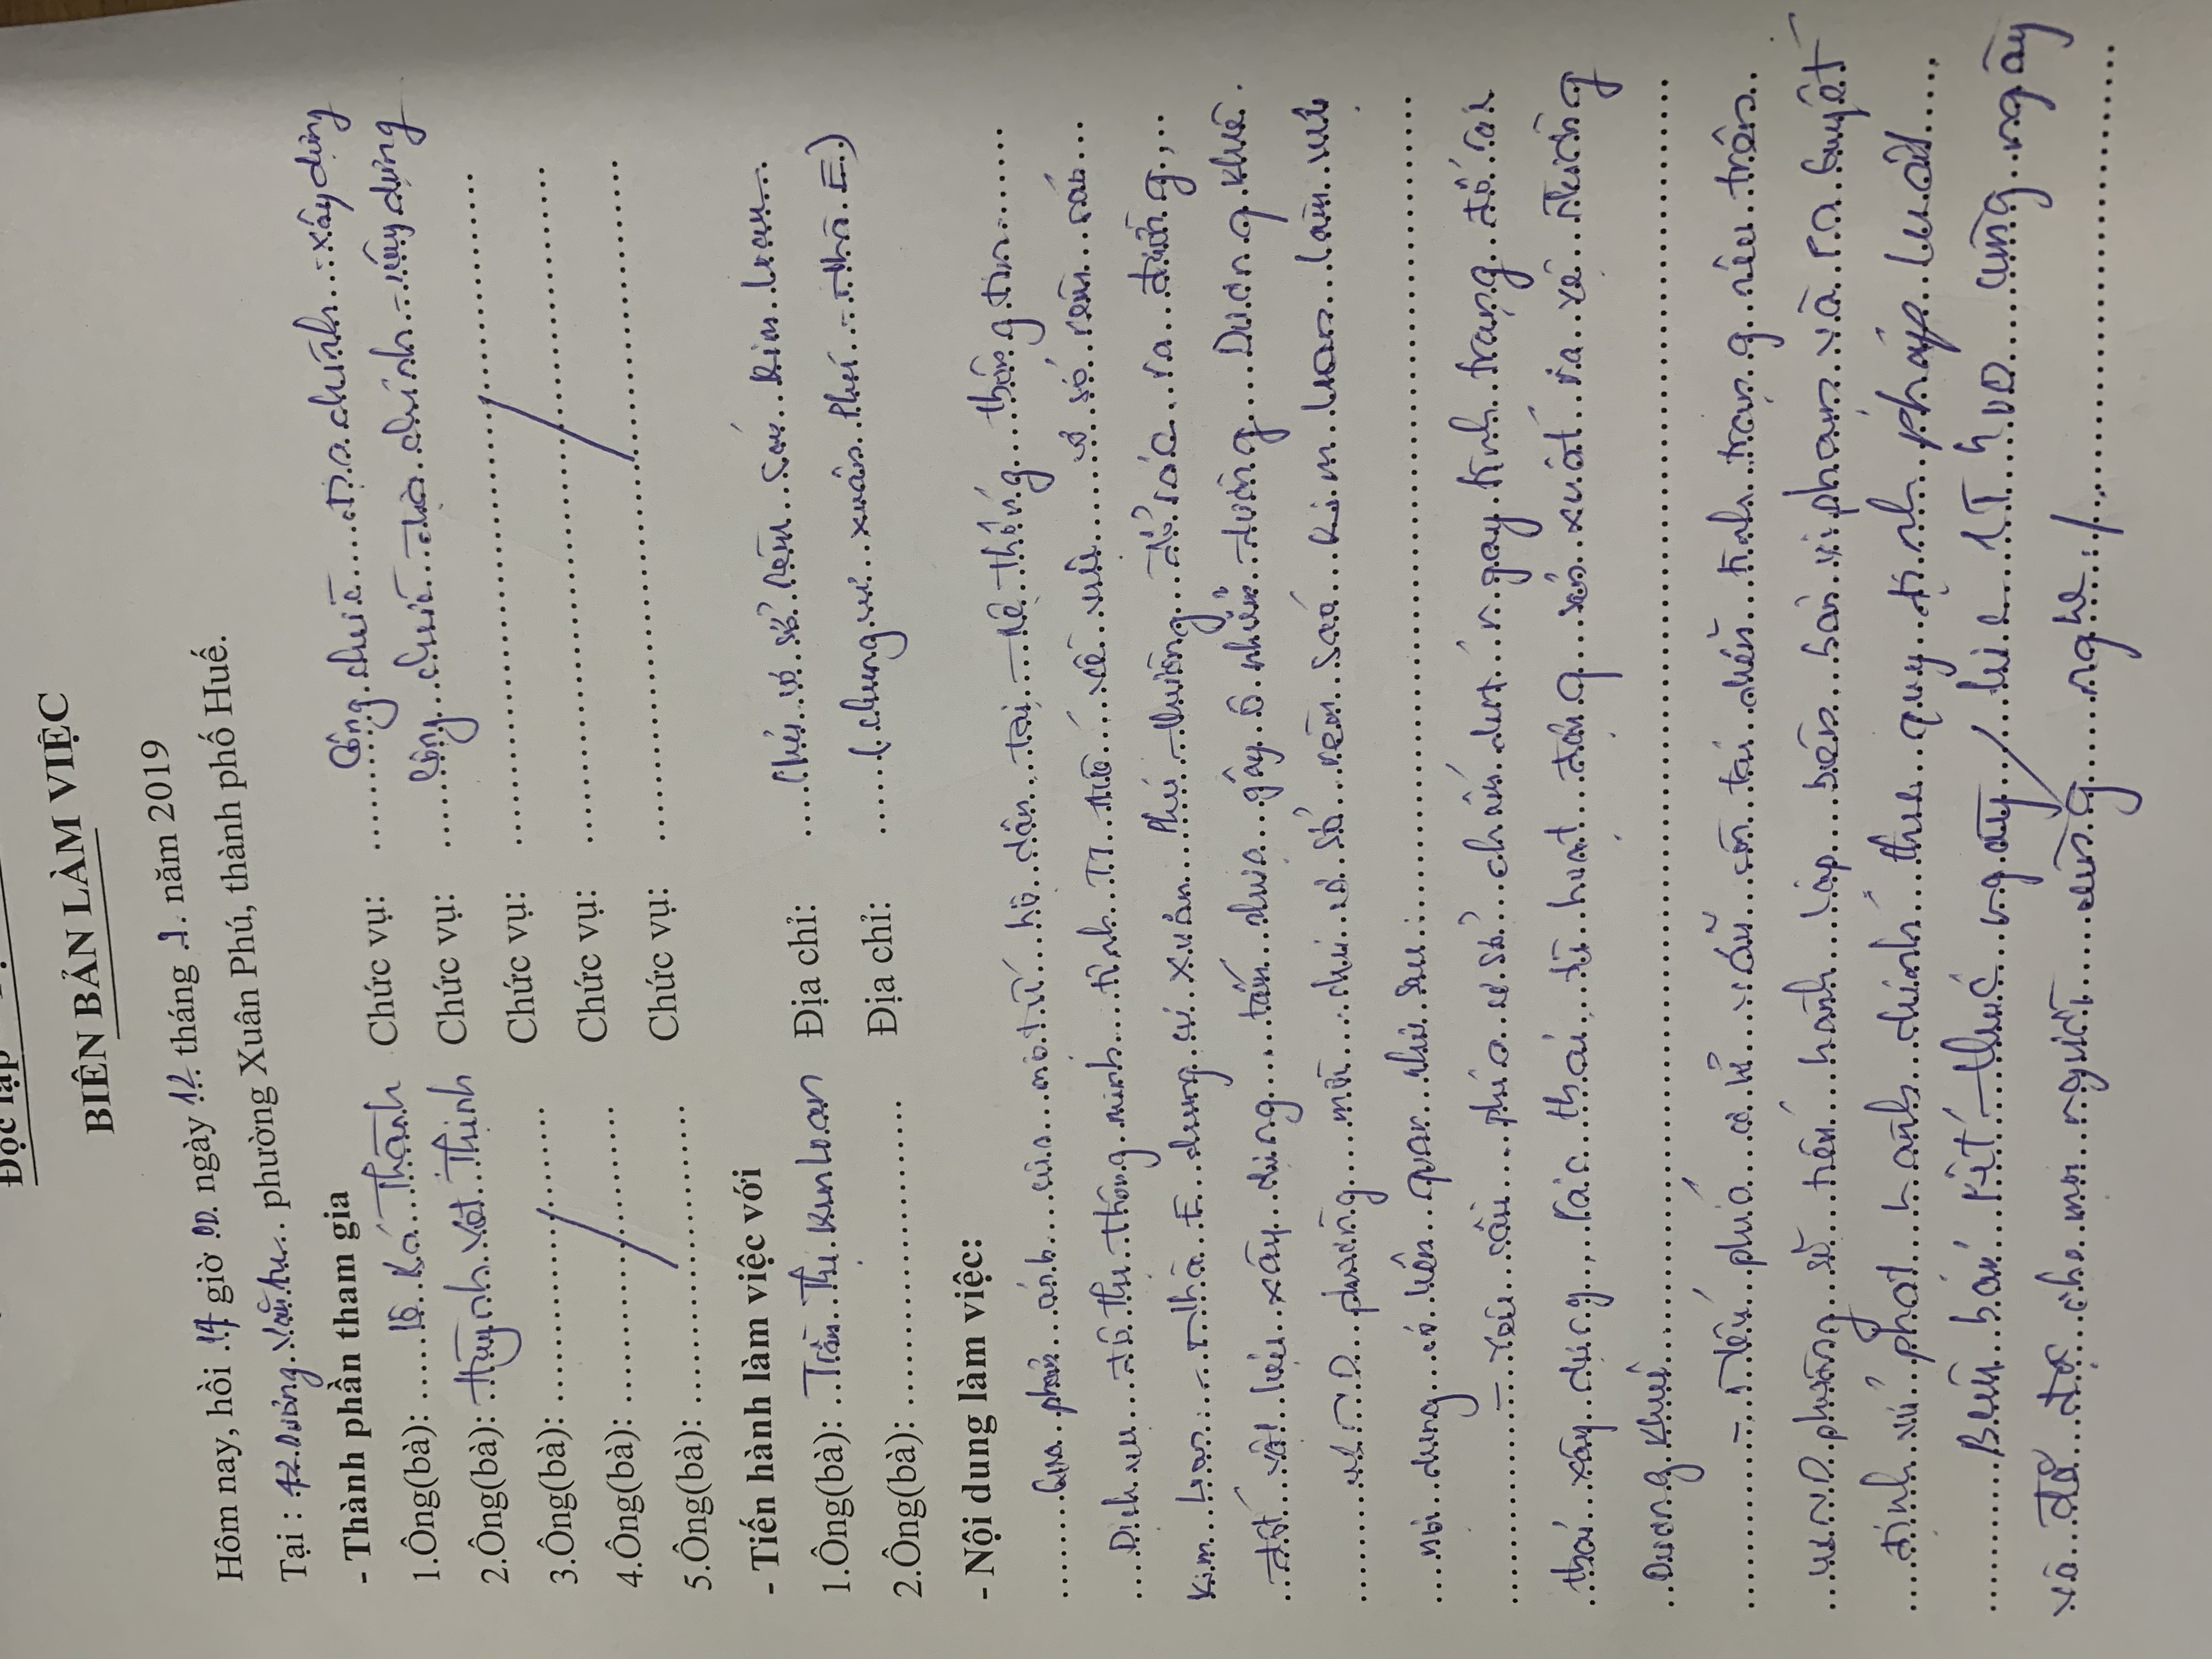 Độc lập
BIÊN BẢN LÀM VIỆC
Hôm nay, hồi 14 giờ 00 ngày 12 tháng 2 năm 2019
Tại : 42 Dương Văn An phường Xuân Phú, thành phố Huế.
- Thành phần tham gia
1.Ông(bà): Lê Bá Thành Chức vụ: Công chức địa chính - xây dựng
2.Ông(bà): Huỳnh Viết Thịnh Chức vụ: Công chức địa chính - xây dựng
3.Ông(bà): Chức vụ:
4.Ông(bà): Chức vụ:
5.Ông(bà): Chức vụ:
- Tiến hành làm việc với
1.Ông(bà): Trần Thị Kim Loan Địa chỉ: Chủ cơ sở rèm sáo Kim Loan
2.Ông(bà): Địa chỉ: (chung cư Xuân Phú - nhà E)
- Nội dung làm việc:
Qua phản ánh của một số hộ dân tại hệ thống thông tin
Dịch vụ đô thị thông minh tỉnh TT Huế về việc cơ sở rèm sáo
Kim Loan - nhà E chung cư Xuân Phú thường đổ rác ra đường,
đốt vật liệu xây dựng, tấm nhựa gây ô nhiễm đường Dương Khuê.
UBND phường mời chủ cơ sở rèm sáo Kim Loan làm việc
nội dung có liên quan như sau:
- Yêu cầu phía cơ sở chấm dứt ngay tình trạng đốt rác
thải xây dựng, rác thải từ hoạt động sản xuất ra vỉa hè đường
Dương Khuê
- Nếu phía cơ sở vẫn còn tái diễn tình trạng nêu trên.
UBND phường sẽ tiến hành lập biên bản vi phạm và ra quyết
định xử phạt hành chính theo quy định pháp luật
Biên bản kết thúc ngay lúc 15h00 cùng ngày
và đã đọc cho mọi người cùng nghe./.